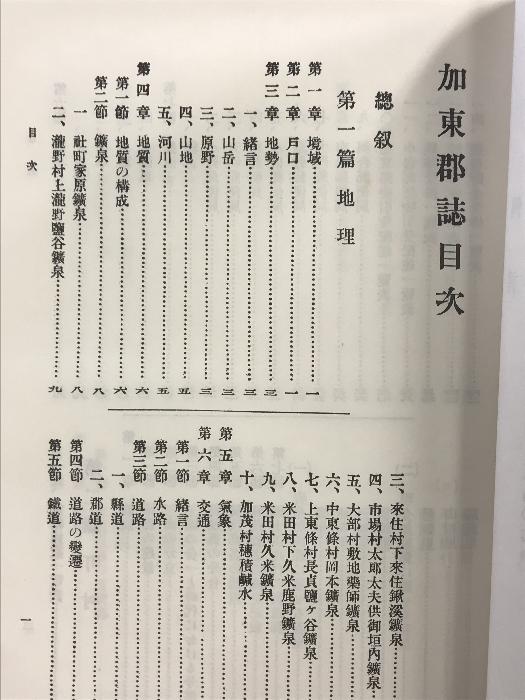 加東郡誌目次
總叙
第一篇 地理
第一章 境域……一
第二章 戸口……一
第三章 地勢……三
一、緒言……三
二、山岳……三
三、原野……三
四、山地……五
五、河川……五
第四章 地質……六
第一節 地質の構成……六
第二節 鑛泉……八
一 社町家原鑛泉……八
二、瀧野村上瀧野鹽谷鑛泉……九
三、來住村下來住鍬溪鑛泉……
四、市場村太郎太夫供御垣內鑛泉……
五、大部村敷地藥師鑛泉……
六、中東條村岡本鑛泉……
七、上東條村長貞鹽ヶ谷鑛泉……
八、米田村下久米鹿野鑛泉……
九、米田村久米鑛泉……
十、加茂村穗積鹹水……
第五章 氣象……
第六章 交通……
第一節 緒言……
第二節 水路……
第三節 道路……
一、縣道……
二、郡道……
第四節 道路の變遷……
第五節 鐵道……
目次
一